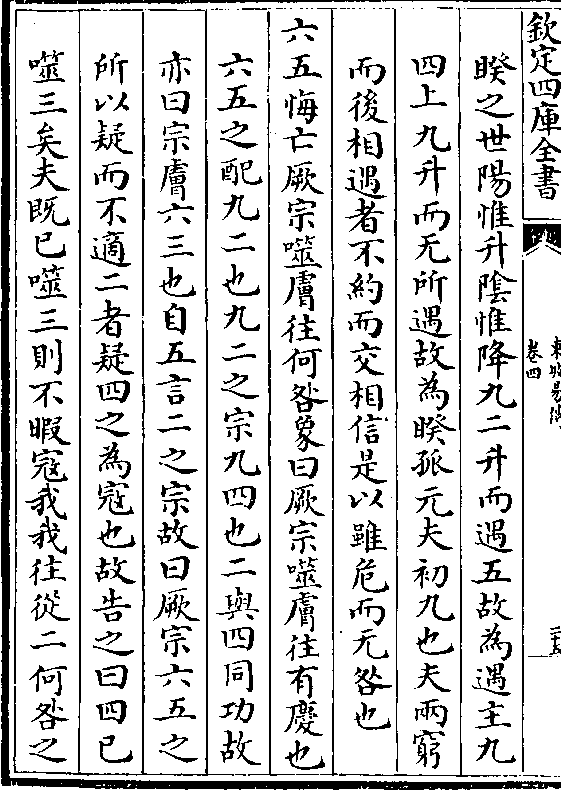 欽定四庫全書
東坡易傳
卷四
睽之世陽惟升陰惟降九二升而遇五故為遇主九
四上九升而无所遇故為睽孤元夫初九也夫兩窮
而後相遇者不約而交相信是以雖危而无咎也
六五悔亡厥宗噬膚往何咎象曰厥宗噬膚往有慶也
六五之配九二也九二之宗九四也二與四同功故
亦曰宗膚六三也自五言二之宗故曰厥宗六五之
所以疑而不適二者疑四之為寇也故告之曰四已
噬三矣夫既已噬三則不暇寇我我往從二何咎之